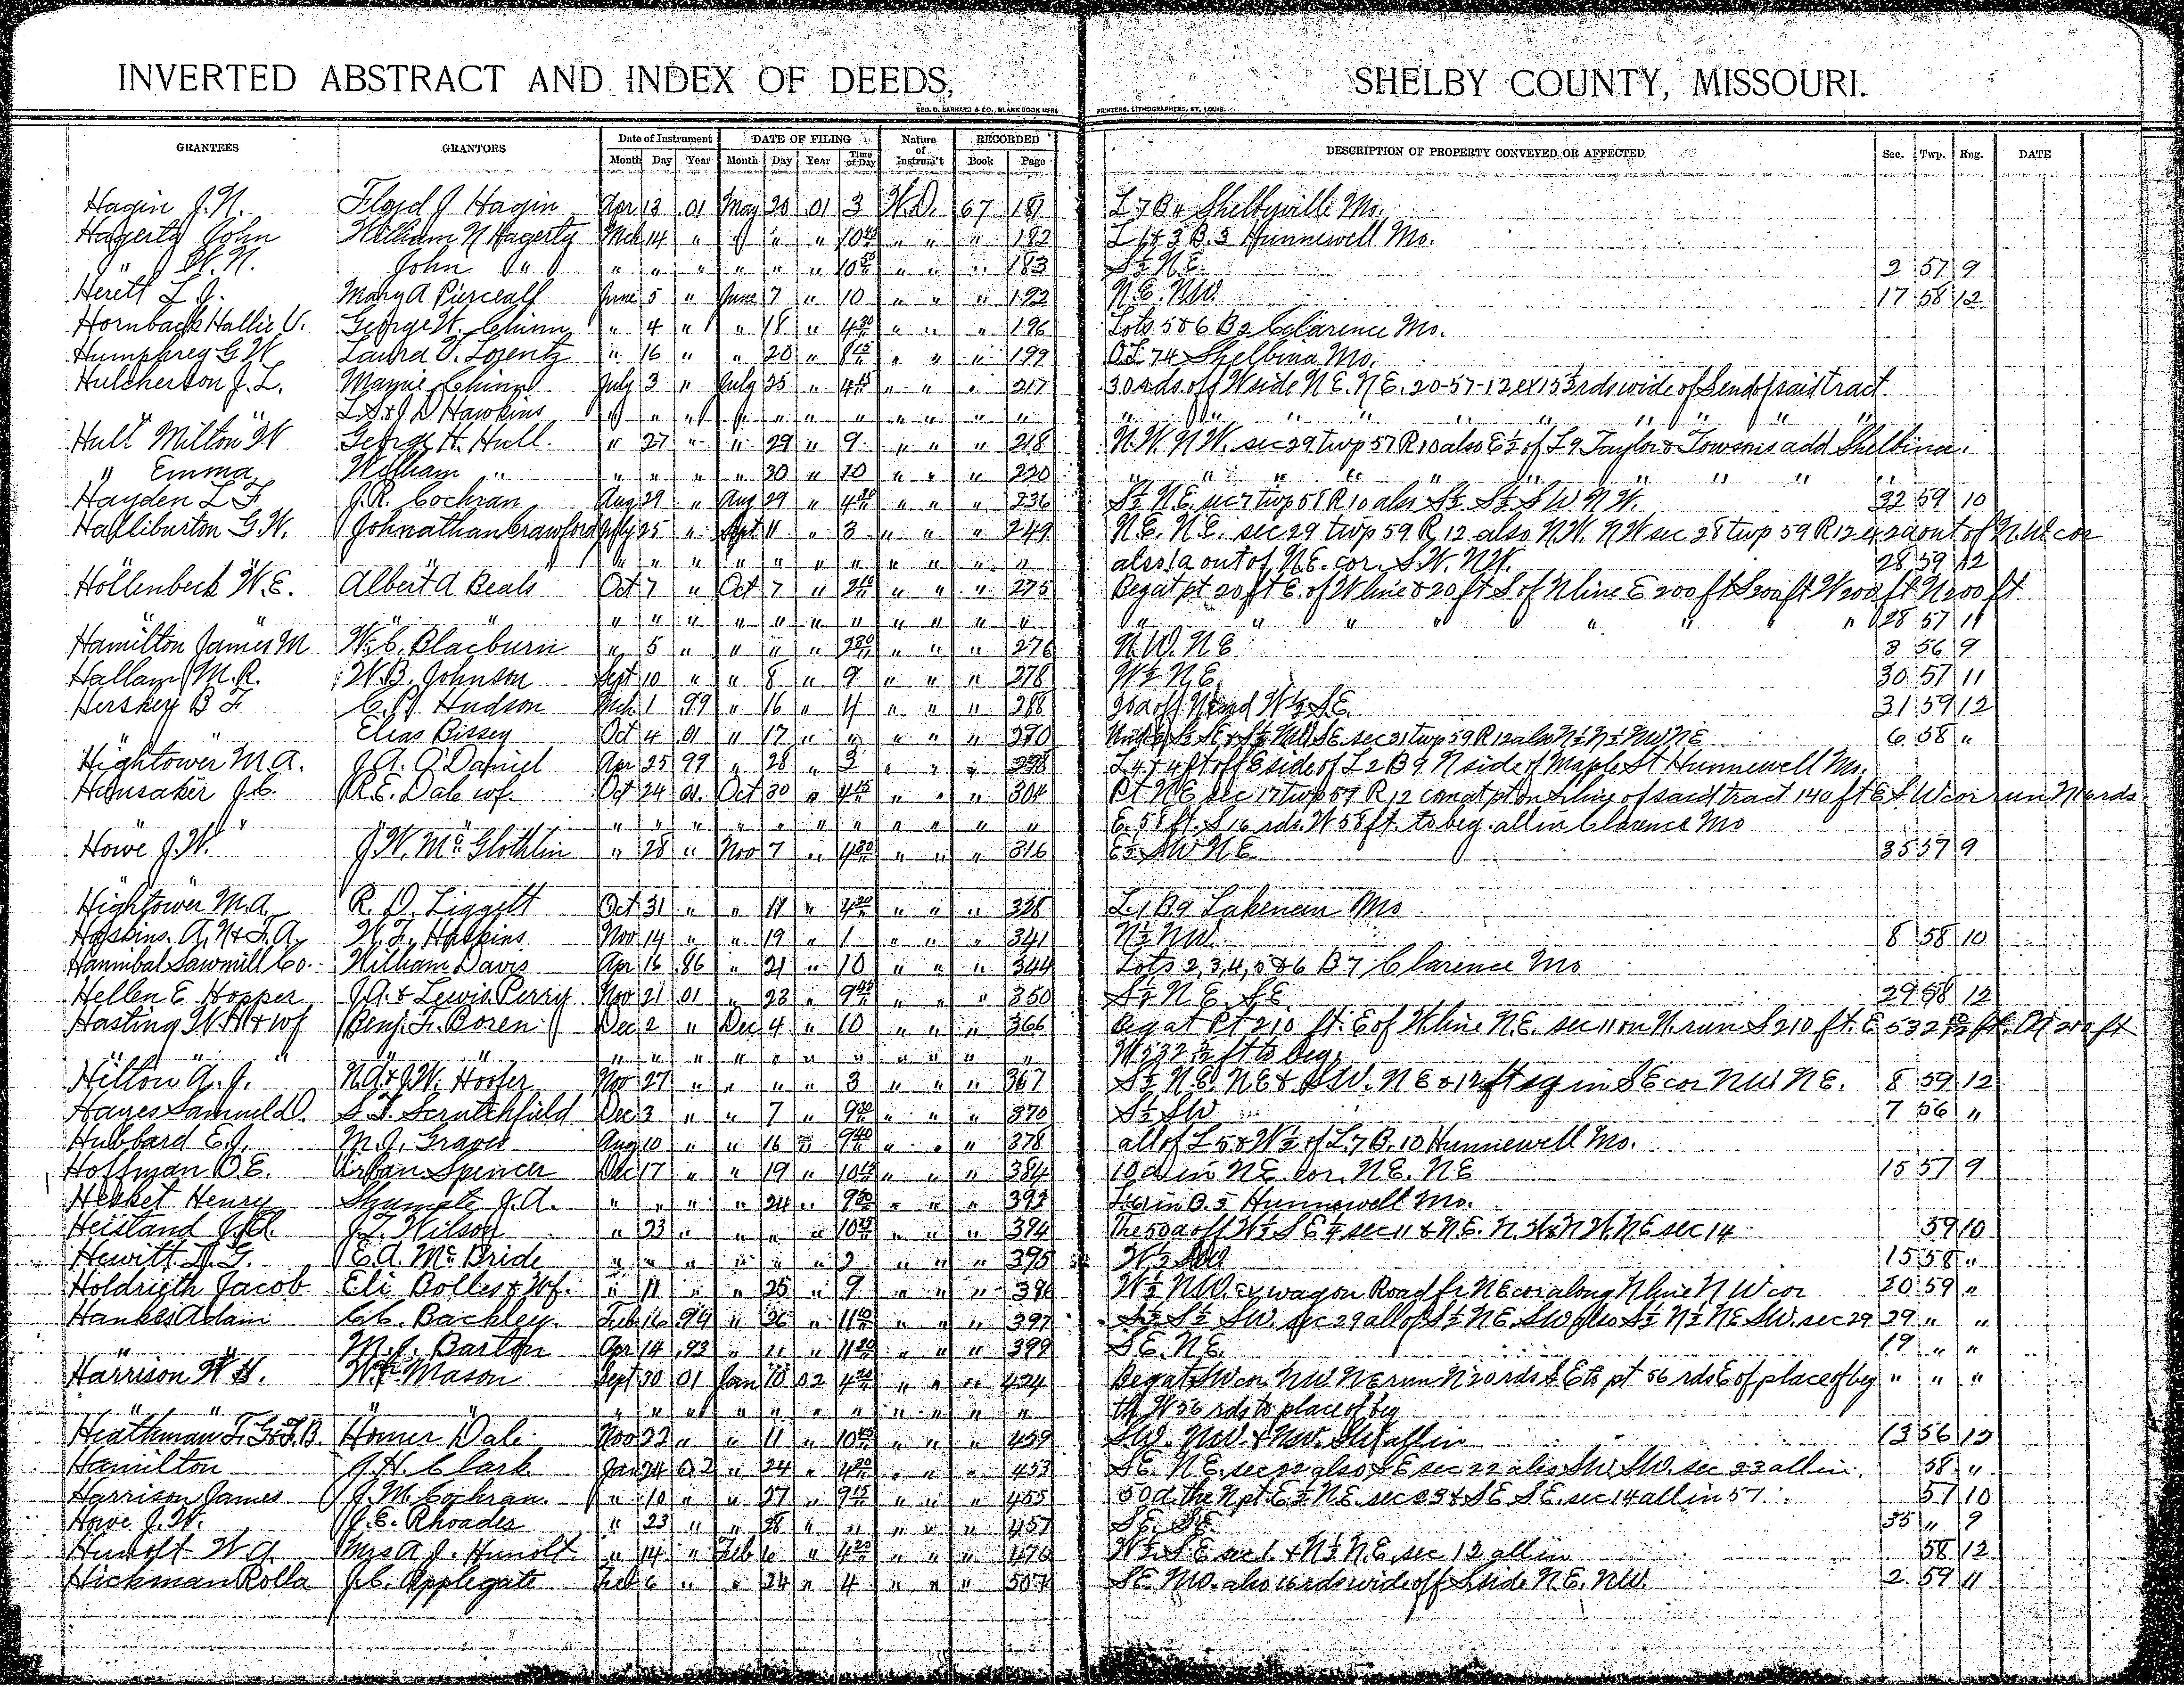 INVERTED ABSTRACT AND INDEX OF DEEDS, SHELBY COUNTY, MISSOURI.
GEO. D. BARNARD & CO., BLANK BOOK MFRS PRINTERS, LITHOGRAPHERS, ST. LOUIS.
GRANTEES GRANTORS Date of Instrument DATE OF FILING Nature of Instrum't RECORDED DESCRIPTION OF PROPERTY CONVEYED OR AFFECTED Sec. Twp. Rng. DATE
Month Day Year Month Day Year Time of Day Book Page
Hagin J.N. Floyd J Hagin Apr 13 01 May 20 01 3 W.D. 67 181 L 7 B 4 Shelbyville Mo.
Hagerty John William N Hagerty Mch 14 " " " " 10 " " " 182 L 1 & 3 B. 3 Hunnewell Mo.
" W.N. John " " " " " " " 10 " " " 183 S½ N.E. 2 57 9
Herett L.J. Mary A Pierceall June 5 " June 7 " 10 " " " 192 N.E. NW 17 58 12
Hornback Hallie V. George W. Chinn " 4 " " 18 " 4 30 " " " 196 Lots 5 & 6 B 2 Clarence Mo.
Humphrey G W Laura V. Lorentz " 16 " " 20 " 8 15 " " " 199 OL 74 Shelbina Mo.
Hulcherson J.L. Mamie Chinn July 3 " July 25 " 4 15 " " " 217 30 rds off W side N.E. N.E. 20-57-12 ex 15½ rds wide of S end of said tract
" L.S. & J D Hawkins " " " " " " " " " " " " " " " " " " " "
Hull Milton W George H. Hull " 27 " " 29 " 9 " " " 218 N.W. N.W. sec 29 twp 57 R 10 also E½ of L 9 Taylor & Towsons add Shelbina.
" Emma William " " " " " 30 " 10 " " " 220 " " " " " " " " "
Hayden L F J.R. Cochran Aug 29 " Aug 29 " 4 30 " " " 236 S½ N.E. sec 7 twp 58 R 10 also S½ S½ S W N W. 32 59 10
Halliburton G.W. Johnathan Crawford July 25 " Sept 11 " 3 " " " 249 N.E. N.E. sec 29 twp 59 R 12 also N.W. N W sec 28 twp 59 R 12 ex 2a out of N.W. cor
" " " " " " " " " " " " also 1a out of N.E. cor. S.W. N.W. 28 59 12
Hollenbeck W.E. Albert A Beals Oct 7 " Oct 7 " 2 10 " " " 275 Beg at pt 20 ft E. of W line & 20 ft S of N line E 200 ft S 200 ft W 200 ft N 200 ft
" " " " " " " " " " " " " " " " " " " " 28 57 11
Hamilton James M W.C. Blacburn " 5 " " " " 2 30 " " " 276 N.W. N.E 3 56 9
Hallam M.R. W.B. Johnson Sept 10 " " 8 " 9 " " " 278 W½ N.E. 30 57 11
Hershey B F C.P. Hudson Mch 1 99 " 16 " 4 " " " 288 20a off N end W½ S.E. 31 59 12
" Elias Bissey Oct 4 01 " 17 " " " " " 290 sec 31 twp 59 R 12 also N½ N½ NW NE 6 58 "
Hightower M.A. J.A. O'Daniel Apr 25 99 " 28 " 3 " " " 298 L 4 & 4 ft off E side of L 2 B 9 N side of Maple St Hunnewell Mo.
Hunsaker J.C. R.E. Dale wf. Oct 24 01 Oct 30 " 4 15 " " " 304 Pt N.E sec 17 twp 57 R 12 com at pt on S line of said tract 140 ft E S.W cor run N rds
" " " " " " " " " " " " E. 58 ft. S 16 rds. W 58 ft. to beg. all in Clarence Mo
Howe J.W. J.W. McGlothlin " 28 " Nov 7 " 4 30 " " " 316 E½ SW N E 35 57 9
Hightower M.A. R.D. Liggett Oct 31 " " 11 " 4 30 " " " 328 L 1 B 9 Lakenan Mo
Hoskins. A.N & F.A. W.F. Hoskins Nov 14 " " 19 " 1 " " " 341 N½ NW. 8 58 10
Hannibal Sawmill Co. William Davis Apr 16 86 " 21 " 10 " " " 344 Lots 2, 3, 4, 5 & 6 B 7 Clarence Mo
Hellen E Hopper J.A. & Lewis Perry Nov 21 01 " 23 " 9 45 " " " 350 S½ N.E. S.E. 29 58 12
Hasting W.H & wf Benj. F. Boren Dec 2 " Dec 4 " 10 " " " 366 Beg at Pt 210 ft. E of W line N.E. sec 11 on N. run S 210 ft. E 532 ft. N 210 ft
" " " " " " " " " " " " W 532 ft to beg.
Hilton A.J. N.A. & J.W. Hooper Nov 27 " " " " 3 " " " 367 S½ N.E. N.E & S.W. N E & 12 ft sq in S E cor N.W. N E. 8 59 12
Hayes Samuel D. S.T. Scrutchfield Dec 3 " " 7 " 9 30 " " " 370 S½ SW 7 56 "
Hubbard E.J. M.J. Graves Aug 10 " " 16 " 9 40 " " " 378 all of L 5 & W½ of L. 7 B. 10 Hunnewell Mo.
Hoffman O.E. Urban Spencer Dec 17 " " 19 " 10 " " " 384 10 a in N.E. cor. N.E. N.E 15 57 9
Hesket Henry Shumate J.A. " " " " 24 " 9 30 " " " 393 L 6 in B. 5 Hunnewell Mo.
Heistand J.H. J.L. Wilson " 23 " " " " 10 " " " 394 The 50a off W½ S E¼ sec 11 & N.E. N.W. & N W. N E sec 14 59 10
Hewitt D.G. E.A. McBride " " " " " " 2 " " " 395 W½ SW 15 58 "
Holdrieth Jacob Eli Bolles & Wf. " 11 " " 25 " 9 " " " 396 W½ N.W. ex wagon Road fr N E cor along N line N W cor 20 59 "
Hankes Adam C.C. Backley. Feb 16 94 " 26 " 11 " " " 397 S½ S½ SW. sec 29 all of S½ N.E. SW also S½ N½ N E SW. sec 29 29 " "
" M.J. Barton Apr 14 93 " " " 11 20 " " " 399 S.E. N.E. 19 " "
Harrison W H. Mason Sept 30 01 Jan 10 02 4 20 " " " 424 Beg at SW cor. NW NE run N 20 rds S E to pt 56 rds E of place of beg " " "
" " " " " " " " " " " " th W 56 rds to place of beg
Heathman F. G & J.B. Homer Dale Nov 22 " " 11 " 10 " " " 439 S.W. N.W. & N.W. SW all in 13 56 12
Hamilton J.H. Clark Jan 24 02 " 24 " 4 20 " " " 453 S.E. N.E. sec 22 also S E sec 22 also SW SW. sec 23 all in. 58 "
Harrison James J.M. Cochran " 10 " " 27 " 9 15 " " " 455 50 a. the N pt E½ N.E. sec 23 & S.E S.E. sec 14 all in 57 57 10
Howe J.W. J.E. Rhoades " 23 " " 28 " " " " " 457 S.E. S.E. 35 " 9
Hunolt W A. Mrs A.J. Hunolt " 14 " Feb 6 " 4 20 " " " 476 W½ S.E sec 1. & N½ N.E. sec 12 all in 58 12
Hickman Rolla J.C. Applegate Feb 6 " " 24 " 4 " " " 507 S.E. also 16 rds wide off S side N.E. N.W. 2 59 11